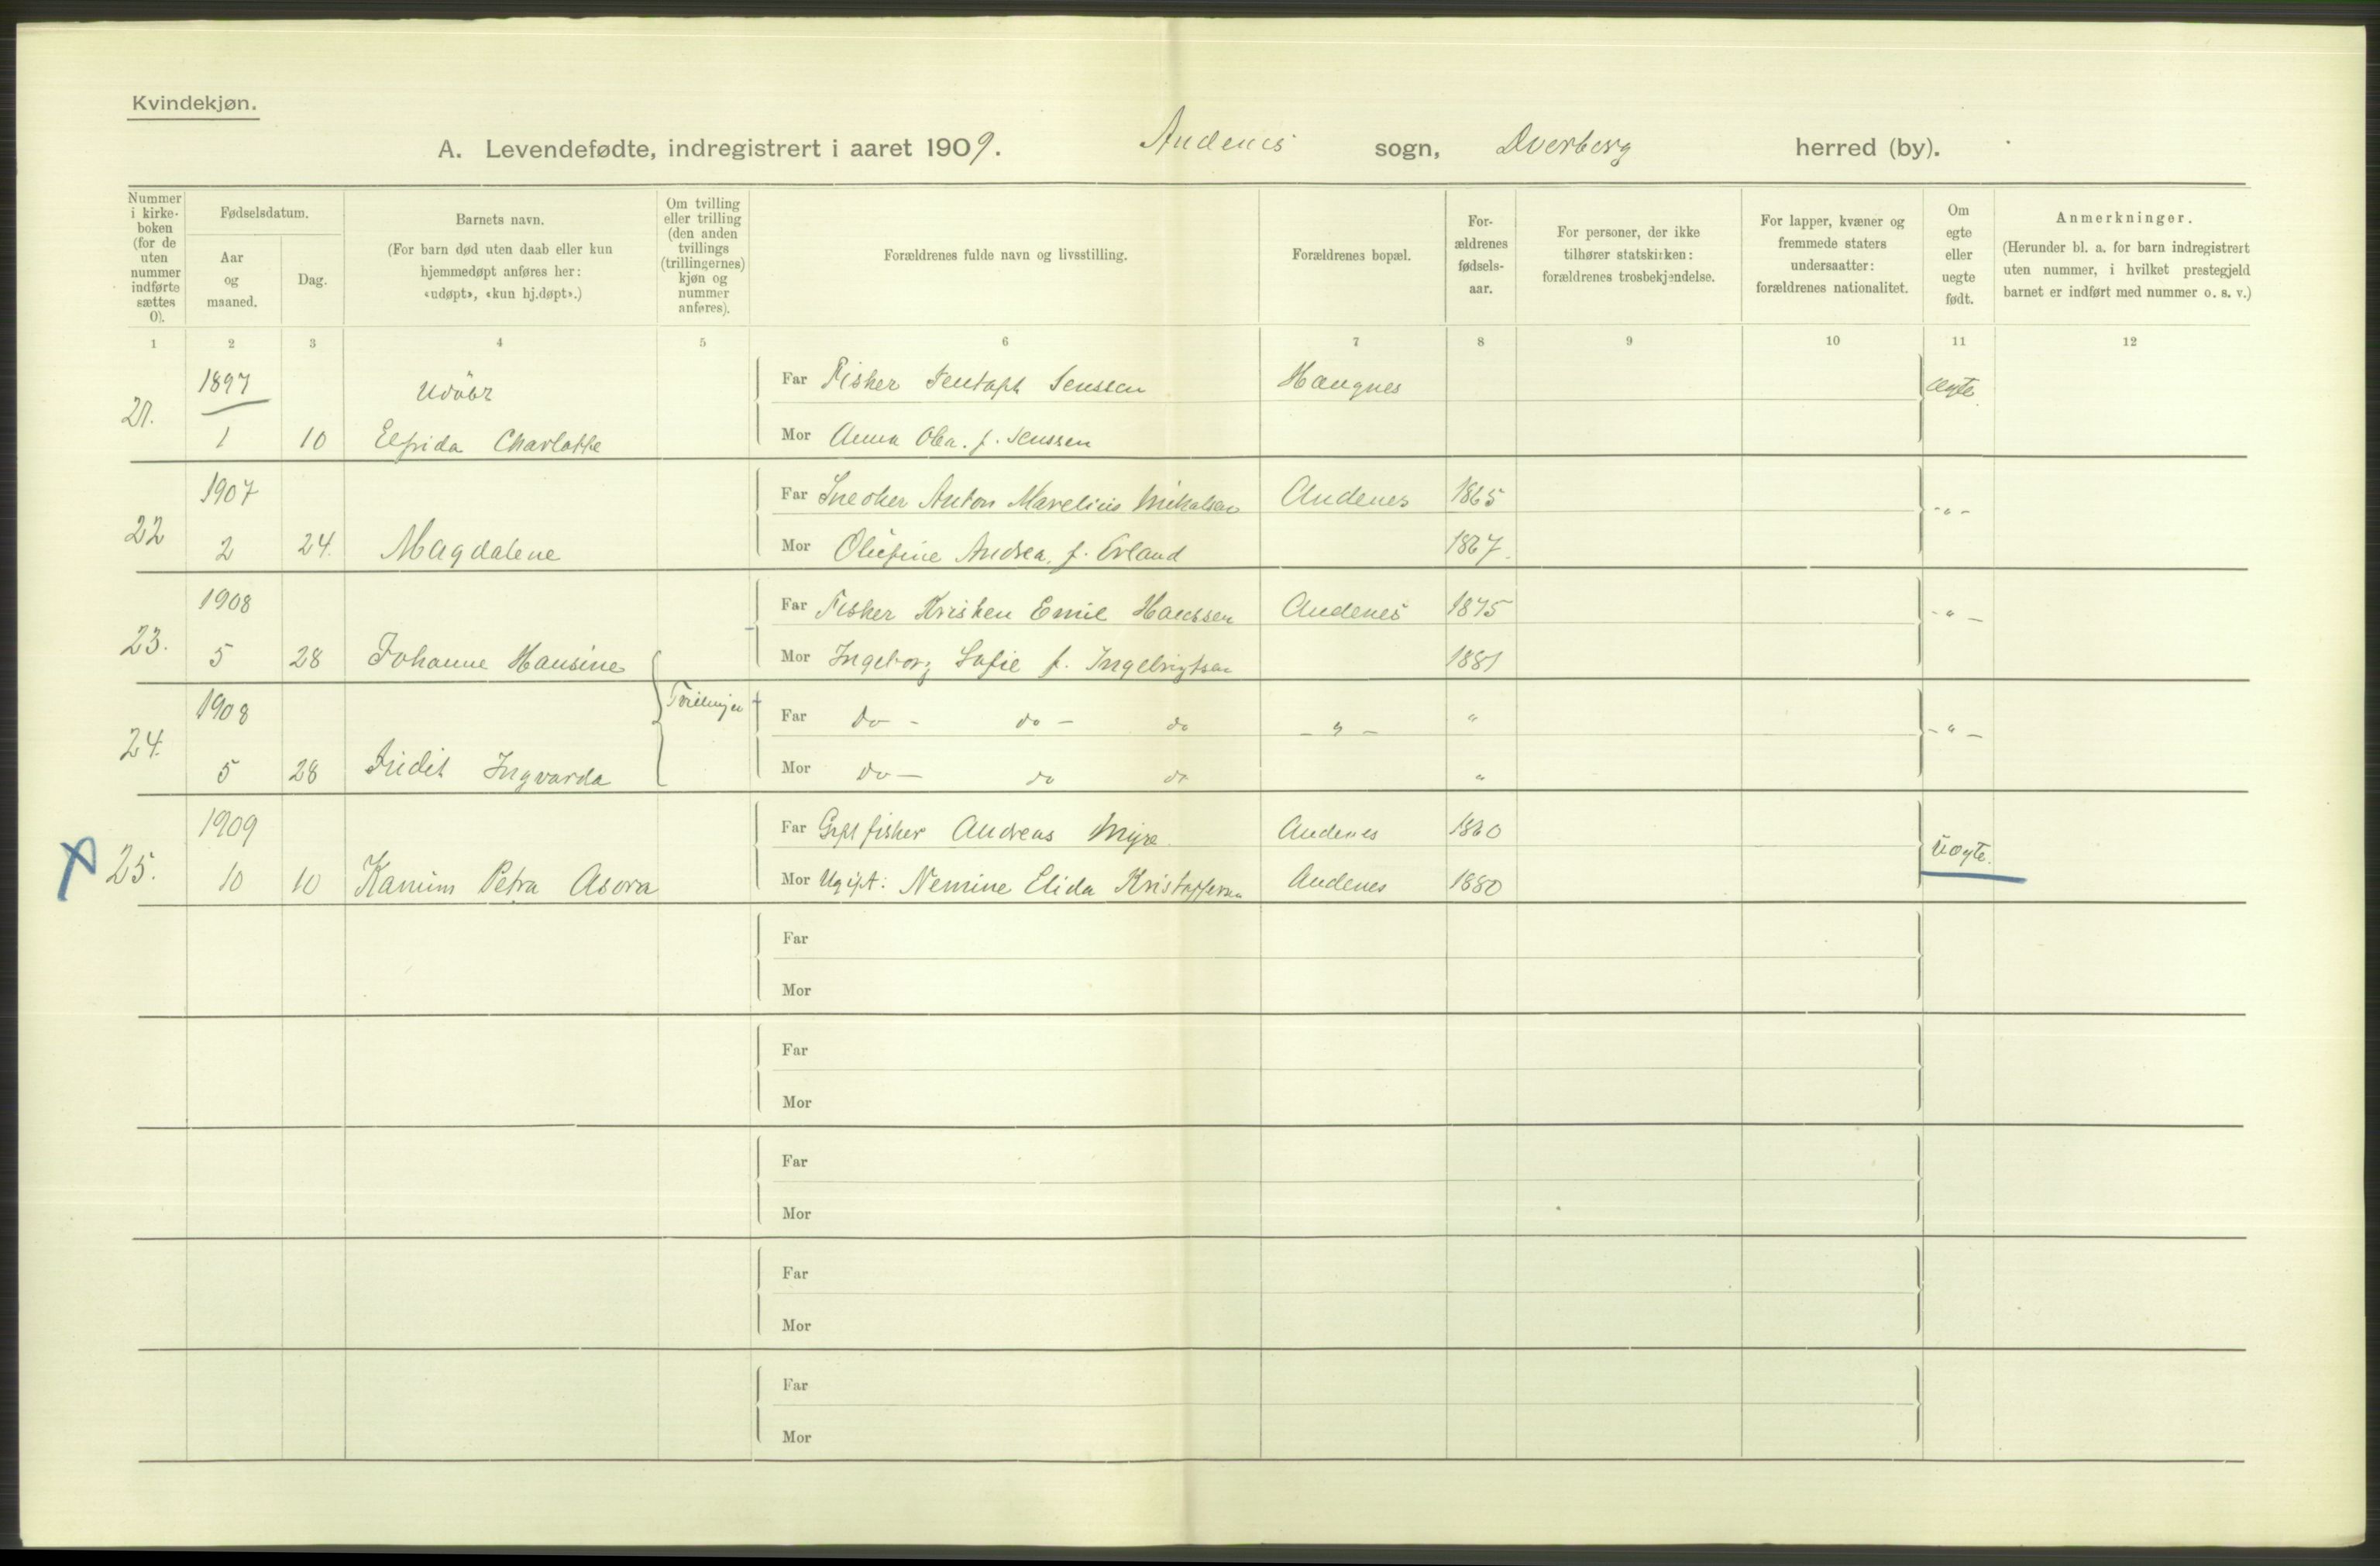 Kvindekjøn.
A. Levendefødte, indregistrert i aaret 1909. Andenes sogn, Dverberg herred (by).
Nummer i kirke- boken (for de uten nummer indførte sættes 0).
Fødselsdatum.
Aar og maaned.
Dag.
Barnets navn.
(For barn død uten daab eller kun hjemmedøpt anføres her: «udøpt», «kun hj.døpt».)
Om tvilling eller trilling (den anden tvillings (trillingernes) kjøn og nummer anføres).
Forældrenes fulde navn og livsstilling.
Forældrenes bopæl.
For- ældrenes fødsels- aar.
For personer, der ikke tilhører statskirken: forældrenes trosbekjendelse.
For lapper, kvæner og fremmede staters undersaatter: forældrenes nationalitet.
Om egte eller uegte født.
Anmerkninger.
(Herunder bl. a. for barn indregistrert uten nummer, i hvilket prestegjeld barnet er indført med nummer o. s. v.)
1 2 3 4 5 6 7 8 9 10 11 12
1897 Far Fisker Jenssen Haugnes ægte
21. 1 10 Elfrida Charlotte Mor Anna f. Jenssen
1907 Far Anton Marelius Mikalsen Andenes 1865 -"-
22 2 24. Magdalene Mor Olufine Andrea f. Erland 1867.
1908 Far Fisker Kristen Emil Hanssen Andenes 1875 -"-
23. 5 28 Johanne Hansine Mor Ingeborg Sofie f. Ingebrigtsen 1881
1908 Tvillinger Far do - do - do -"- " -"-
24. 5 28 Ingvarda Mor do - do do "
1909 Far Gift fisker Andreas Myre Andenes 1860 uægte.
25. 10 10 Petra Asora Mor Ugift: Nemine Elida Kristoffersen Andenes 1880
Far
Mor
Far
Mor
Far
Mor
Far
Mor
Far
Mor